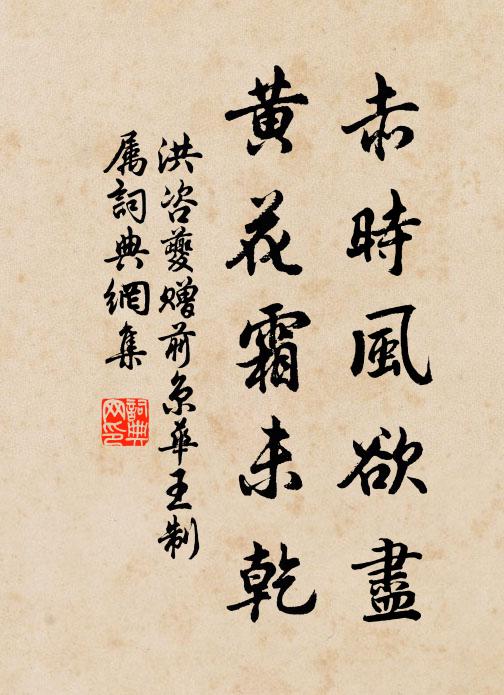 赤時風欲盡
黄花霜未乾
洪咨夔贈前京華王制
属詞典網集
詞典
网印